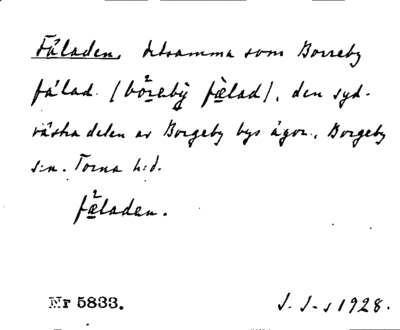 Fäladen, detsamma som Borreby
fälad. (bårebẙ fælad), den syd-
västra delen av Borgeby bys ägor, Borgeby
s:n. Torna h:d.
fæladen.
Nr 5833.
J. J-s 1928.